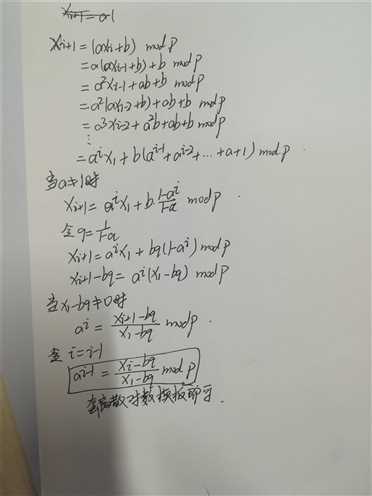 xᵢ₊₁ = (axᵢ+b) mod p
= a(axᵢ₋₁+b)+b mod p
= a²xᵢ₋₁+ab+b mod p
= a²(axᵢ₋₂+b)+ab+b mod p
= a³xᵢ₋₂+a²b+ab+b mod p
⋮
= aⁱx₁+b(aⁱ⁻¹+aⁱ⁻²+...+a+1) mod p
当a≠1时
xᵢ₊₁ = aⁱx₁+b·(1-aⁱ)/(1-a) mod p
令q=1/(1-a)
xᵢ₊₁ = aⁱx₁+bq(1-aⁱ) mod p
xᵢ₊₁-bq = aⁱ(x₁-bq) mod p
当x₁-bq≠0时
aⁱ = (xᵢ₊₁-bq)/(x₁-bq) mod p.
令i=i-1
aⁱ⁻¹ = (xᵢ-bq)/(x₁-bq) mod p
离散对数模板即可.